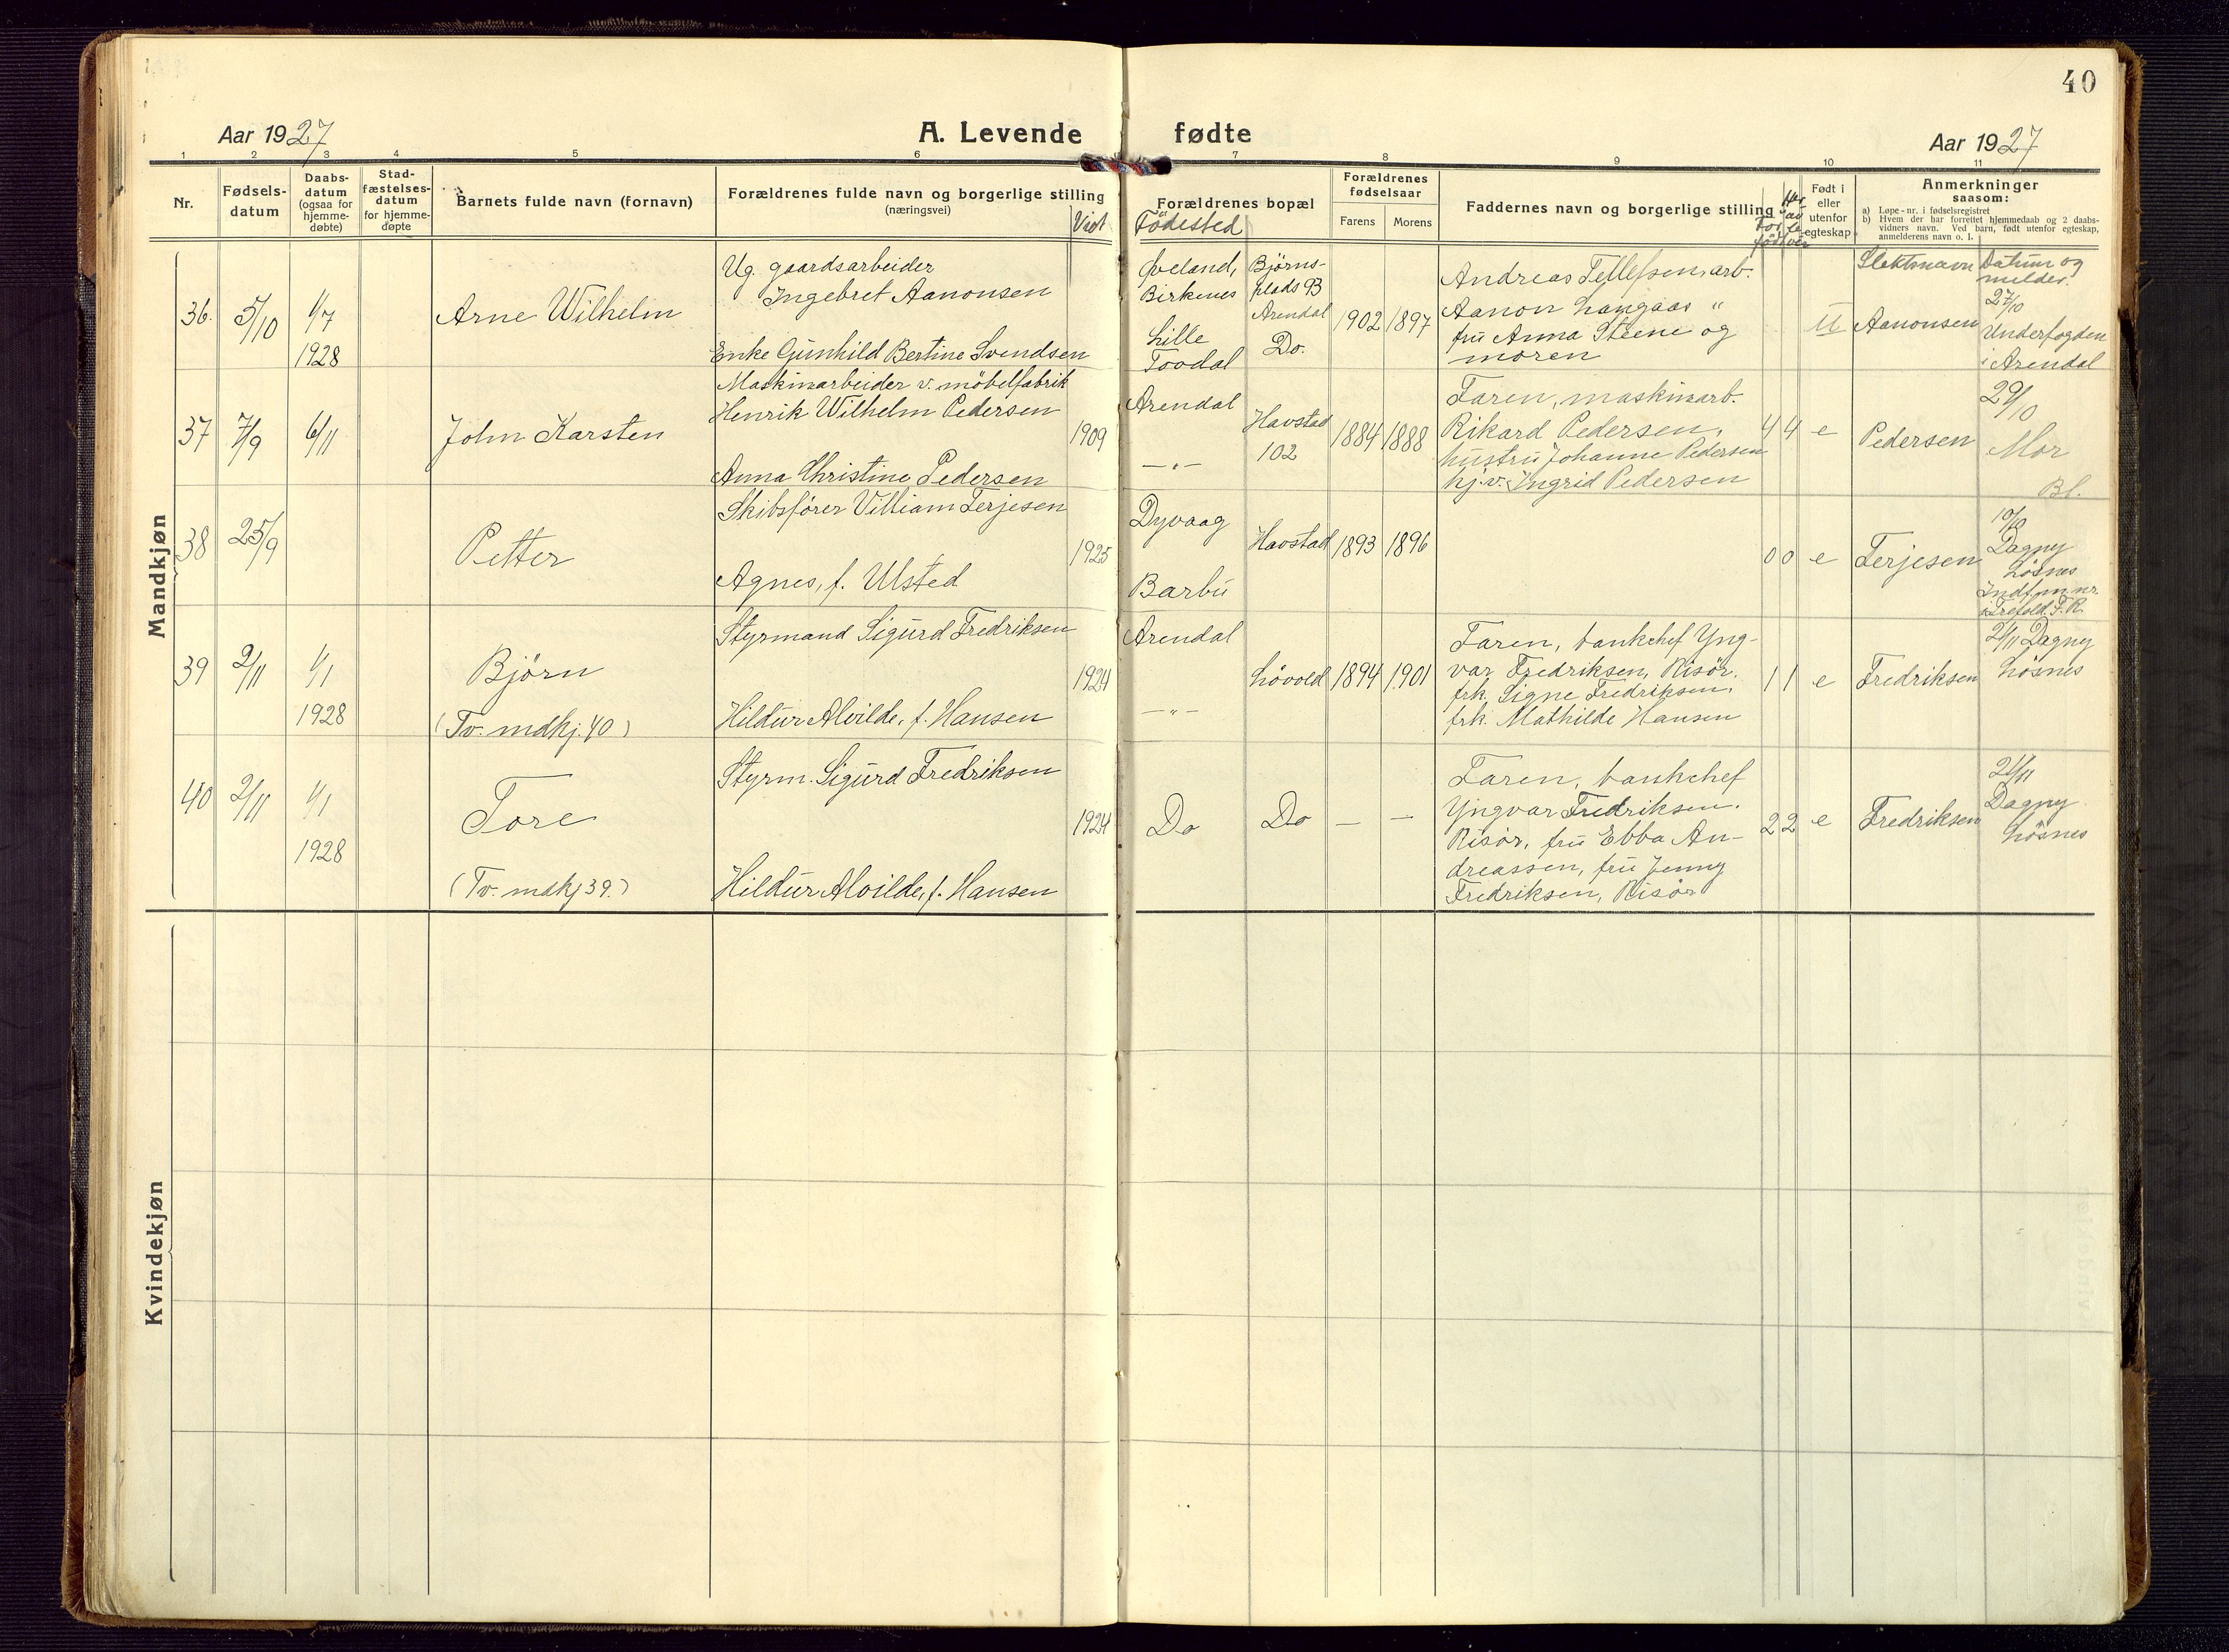 40
Aar 1927
A. Levende fødte
Aar 1927
1 2 3 4 5 6 7 8 9 10 11
Nr.
Fødsels-
datum
Daabs-
datum
(ogsaa for
hjemme-
døbte)
Stad-
fæstelses-
datum
for hjemme-
døpte
Barnets fulde navn (fornavn)
Forældrenes fulde navn og borgerlige stilling
(næringsvei)
Viet
Forældrenes bopæl
Födested
Forældrenes
fødselsaar
Farens
Morens
Faddernes navn og borgerlige stilling
Født i
eller
utenfor
egteskap
Anmerkninger
saasom:
a) Løpe-nr. i fødselsregistret
b) Hvem der har forrettet hjemmedaab og 2 daabs-
vidners navn. Ved barn, født utenfor egteskap,
anmelderens navn o. l.
Slektsnavn
Datum og
melder.
Mandkjøn
36.
5/10
1/7
1928
Arne Wilhelm
Ug. gaardsarbeider
Ingebret Aanonsen
Enke Gunhild Bertine Svendsen
Birkenes
Lille
Toodal
Björns-
plads 93
Arendal
Do.
1902
1897
Andreas Tellefsen, arb.
Aanon Langaas "
fru Anna Steene og
moren
U
Aanonsen
27/10
Underfogden
i Arendal
37
7/9
6/11
John Karsten
Maskinarbeider v. möbelfabrik
Henrik Wilhelm Pedersen
Anna Christine Pedersen
1909
Arendal
— " —
Havstad
102
1884
1888
Faren, maskinarb.
Rikard Pedersen,
hustru Johanne Pedersen
hj.v. Ingrid Pedersen
4 4
e
Pedersen
29/10
Mor
Bl.
38
25/9
Petter
Skibsfører Villiam Terjesen
Agnes, f. Ulsted
1925
Dyvaag
Barbu
Havstad
1893
1896
0 0
e
Terjesen
10/10
Dagny
Lösnes
Indf. m. nr.
i Trefold. F. R.
39
2/11
1/1
1928
Björn
(Tv. mdkj. 40)
Styrmand Sigurd Fredriksen
Hildur Alvilde, f. Hansen
1924
Arendal
— " —
Lövold
1894
1901
Faren, bankchef Yng-
var Fredriksen, Risör.
frk. Signe Fredriksen,
frk. Mathilde Hansen
1 1
e
Fredriksen
21/11 Dagny
Lösnes
40
2/11
1/1
1928
Tore
(Tv. mdkj 39.)
Styrm. Sigurd Fredriksen
Hildur Alvilde, f. Hansen
1924
Do
Do
—
—
Faren, bankchef
Yngvar Fredriksen.
Risör, fru Ebba An-
dreassen, fru Jenny
Fredriksen, Risör
2 2
e
Fredriksen
21/11
Dagny
Lösnes
Kvindekjøn